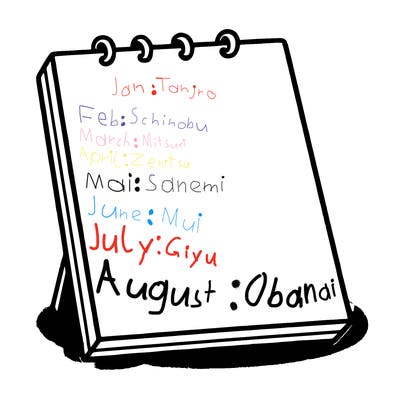 Jan:Tanjro
Feb:Schinobu
March:Mitsuri
April:Zenitsu
Mai:Sanemi
June:Mui
July:Giyu
August:Obanai